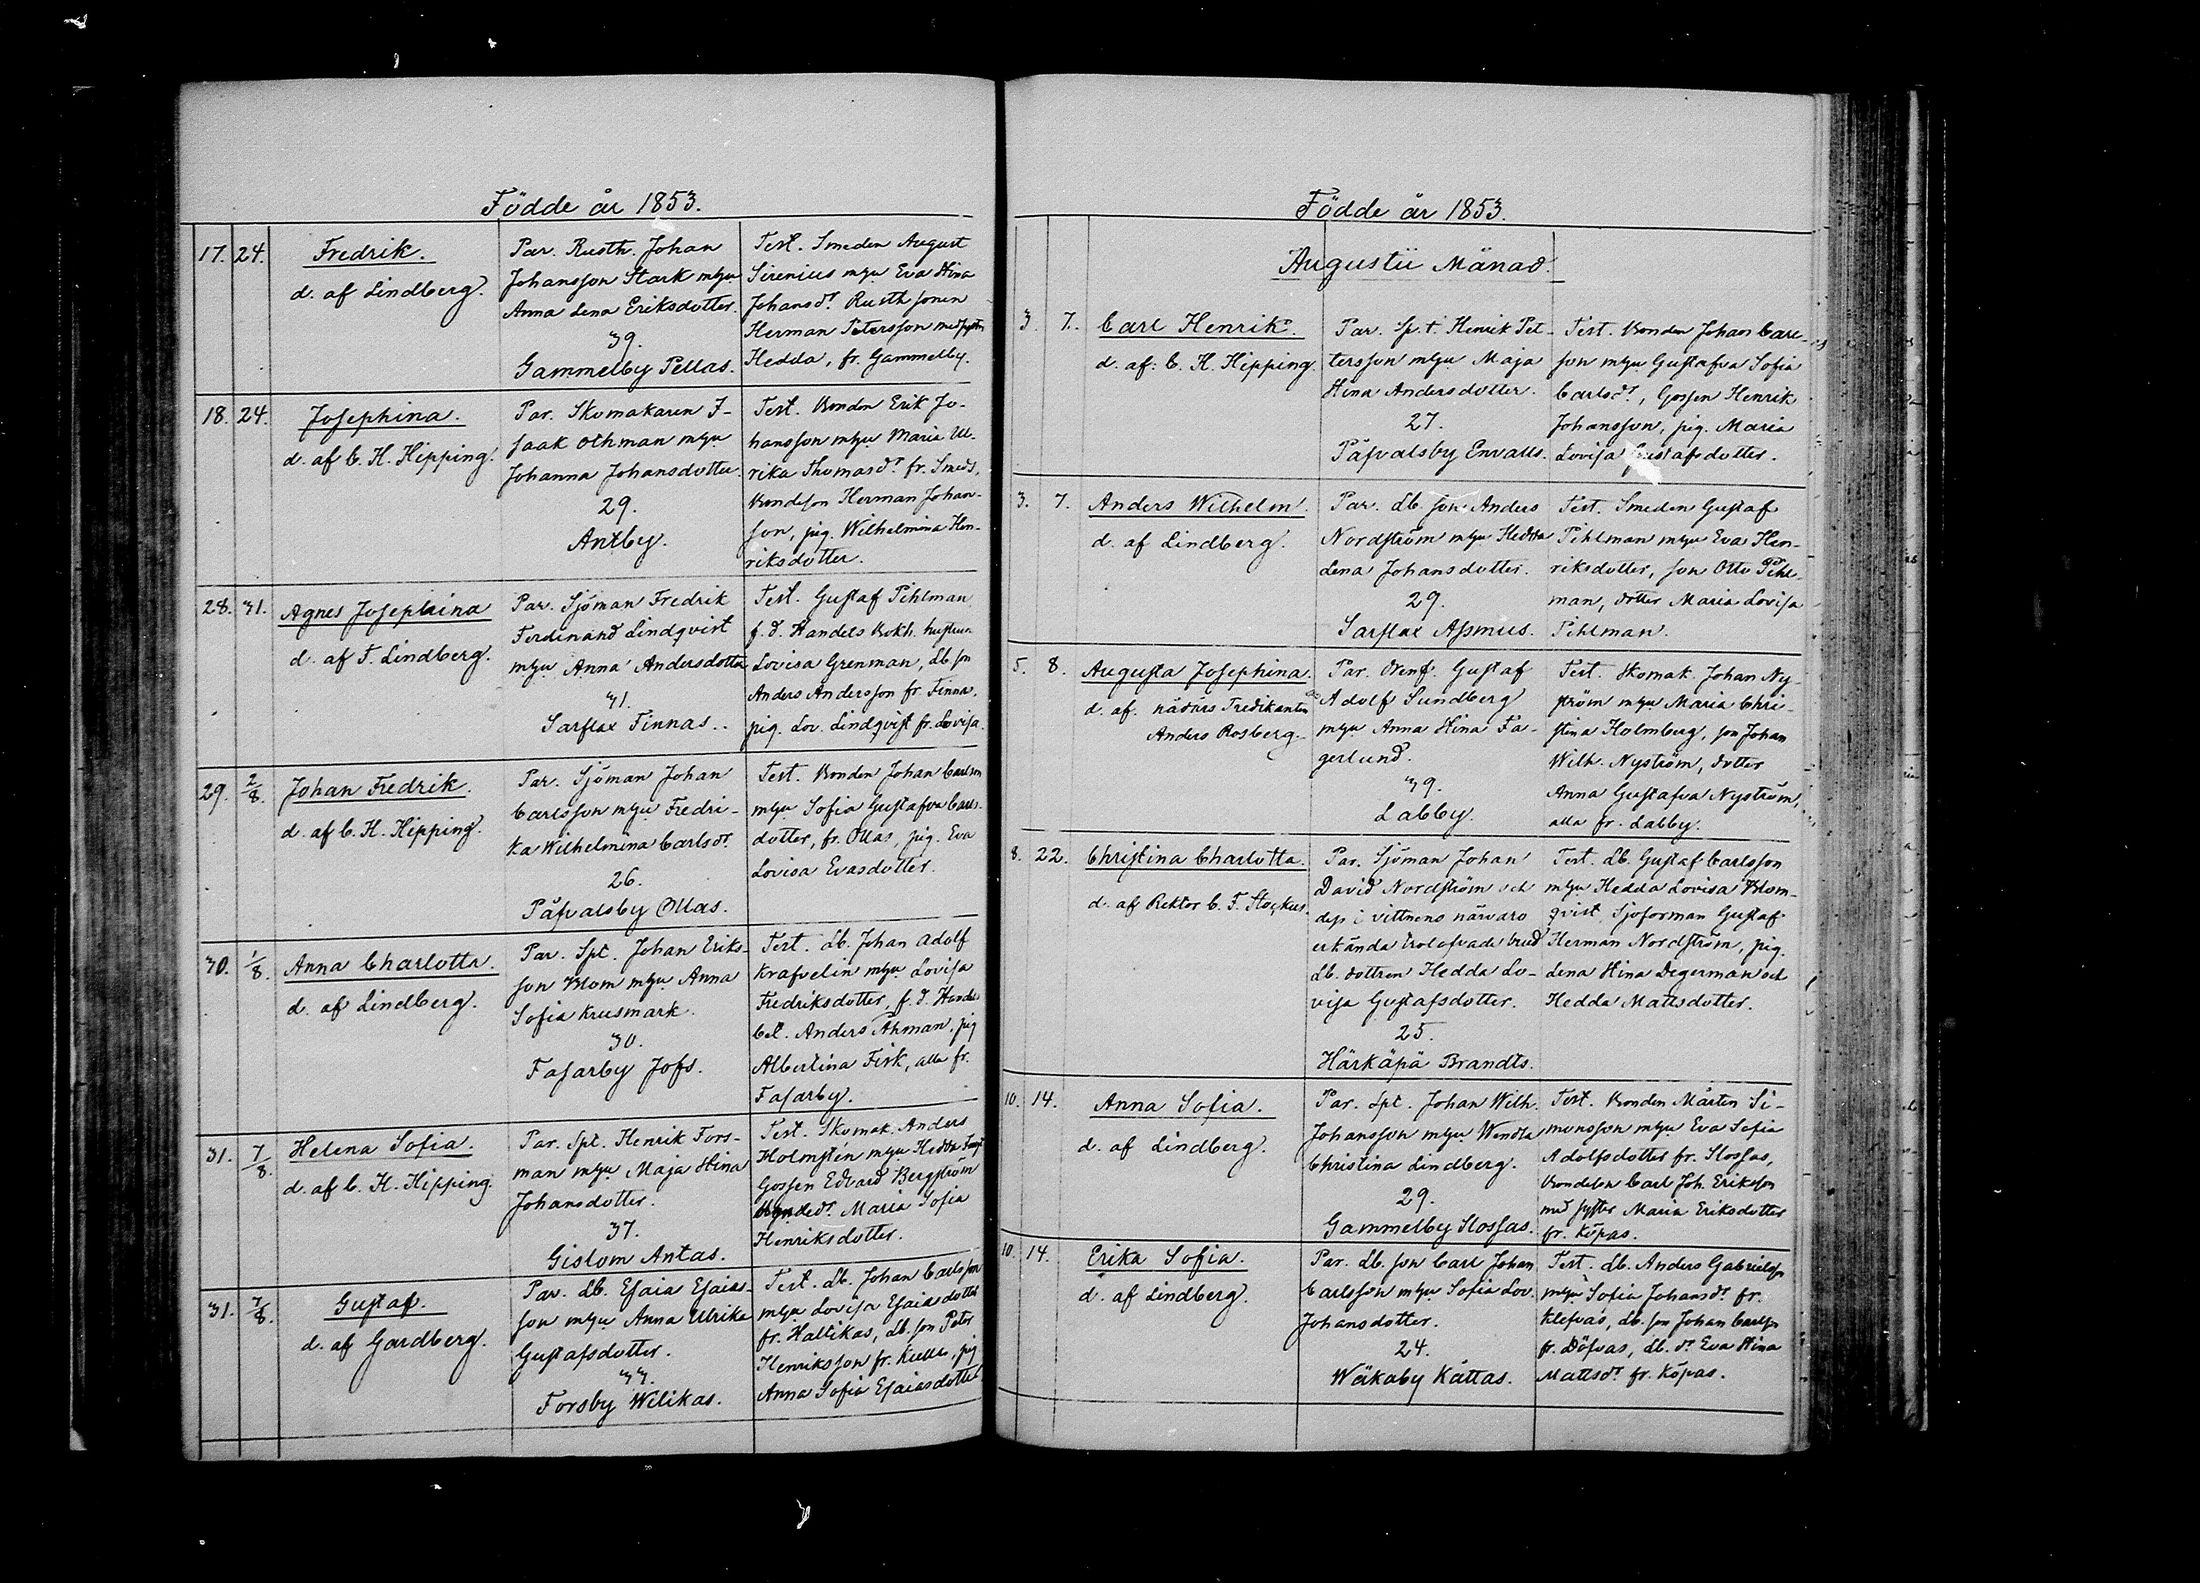 Födde år 1853.
17. 24. Fredrik.
d. af Lindberg.
Par. Rusth. Johan
Johansson Stark m hu
Anna Lena Eriksdotter.
39.
Gammelby Pellas.
Test. Smeden August
Sirenius m hu Eva Stina
Johansdr Rusth sonen
Herman Petersson med syster
Hedda, fr. Gammelby.
18. 24. Josephina.
d. af C. H. Hipping.
Par. Skomakaren I-
saak Othman m hu
Johanna Johansdotter
29.
Antby.
Test. Bonden Erik Jo-
hansson m hu Maria Ul-
rika Thomasdr fr. Smeds,
Bondeson Herman Johan-
son, pig. Wilhelmina Hen-
riksdotter.
28. 31. Agnes Josephina
d. af F. Lindberg.
Par. Sjöman Fredrik
Ferdinand Lindqvist
m hu Anna Andersdotter
31.
Sarflax Finnas.
Test. Gustaf Pihlman
f. d. Handels Bokh. hustrun
Lovisa Grenman, Lb. son
Anders Andersson fr. Finna.
pig. Lov. Lindqvist fr. Lovisa.
29. 2/8. Johan Fredrik.
d. af C. H. Hipping.
Par. Sjöman Johan
Carlsson m hu Fredri-
ka Wilhelmina Carlsdr.
26.
Påfvalsby Ollas.
Test. Bonden Johan Carlsson
m hu Sofia Gustafva Carls-
dotter, fr. Ollas, pig. Eva
Lovisa Evasdotter.
30. 1/8. Anna Charlotta.
d. af Lindberg.
Par. Spt. Johan Eriks-
son Blom m hu Anna
Sofia Krusmark.
30.
Fasarby Jofs.
Test. Lb. Johan Adolf
Krafvelin m hu Lovisa
Fredriksdotter, f. d. Handels
bet. Anders Åhman, pig
Albertina Fisk, alla fr.
Fasarby.
31. 7/8. Helena Sofia.
d. af C. H. Hipping.
Par. Spt. Henrik Fors-
man m hu Maja Stina
Johansdotter.
37.
Gislom Antas.
Test. Skomak. Anders
Holmstén m hu Hedda
Gossen Edvard Bergström
Bondedr. Maria Sofia
Henriksdotter.
31. 7/8. Gustaf.
d. af Gardberg.
Par. Lb. Esaia Esaias-
son m hu Anna Ulrika
Gustafsdotter.
33.
Forsby Wilikas.
Test. Lb. Johan Carlsson
m hu Lovisa Esaiasdotter
fr. Hallikas, Lb. son Peter
Henriksson fr. Kulla, pig
Anna Sofia Esaiasdotter
Födde år 1853.
Augustii Månad.
3. 7. Carl Henrik.
d. af: C. H. Hipping.
Par. Sp.t. Henrik Pet-
tersson m hu Maja
Stina Andersdotter.
27.
Påfvalsby Envalls.
Test. Bonden Johan Carl-
son m hu Gustafva Sofia
Carlsdr, Gossen Henrik
Johansson, pig. Maria
Lovisa Gustafsdotter.
3. 7. Anders Wilhelm.
d. af Lindberg.
Par. Lb son Anders
Nordström m hu Hedda
Lena Johansdotter.
29.
Sarflax Assmus.
Test. Smeden Gustaf
Pihlman m hu Eva Hen-
riksdotter, son Otto Pihl-
man, dotter Maria Lovisa
Pihlman.
5. 8. Augusta Josephina.
d. af. nådårs Predikanten
Anders Rosberg.
Par. Gustaf
Adolf Sundberg
m hu Anna Stina Fa-
gerlund.
39.
Labby.
Test. Skomak. Johan Ny-
ström m hu Maria Chri-
stina Holmberg, son Johan
Wilh. Nyström, dotter
Anna Gustafva Nyström,
alla fr. Labby.
8. 22. Christina Charlotta.
d. af Rektor C. F. Stockus.
Par. Sjöman Johan
David Nordström och
dess i vittnens närvaro
erkända trolofvade brud
Lb. dottren Hedda Lo-
visa Gustafsdotter.
25.
Härkäpä Brandts.
Test. Lb. Gustaf Carlsson
m hu Hedda Lovisa Blom-
qvist, Sjöforman Gustaf
Herman Nordström, pig.
Lena Stina Degerman och
Hedda Mattsdotter.
10. 14. Anna Sofia.
d. af Lindberg.
Par. Spt. Johan Wilh.
Johansson m hu Wendla
Christina Lindberg.
29.
Gammelby Slossas.
Test. Bonden Mårten Si-
monsson m hu Eva Sofia
Adolfsdotter fr. Slossas,
Bondeson Carl Joh. Eriksson
med syster Maria Eriksdotter
fr. Köpas.
10. 14. Erika Sofia.
d. af Lindberg.
Par. Lb. son Carl Johan
Carlsson m hu Sofia Lov.
Johansdotter.
24.
Wäkaby Kättas.
Test. Lb. Anders Gabrielss
m hu Sofia Johansdr fr.
Klefvas, Lb. son Johan Carlss
fr. Döfvas, Lb. dr Eva Stina
Mattsdr fr. Köpas.